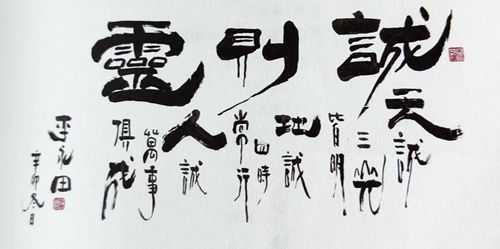 誠則靈
天誠
三光
皆明
地誠
四時
常行
人誠
萬事
俱成
永田
辛卯冬日